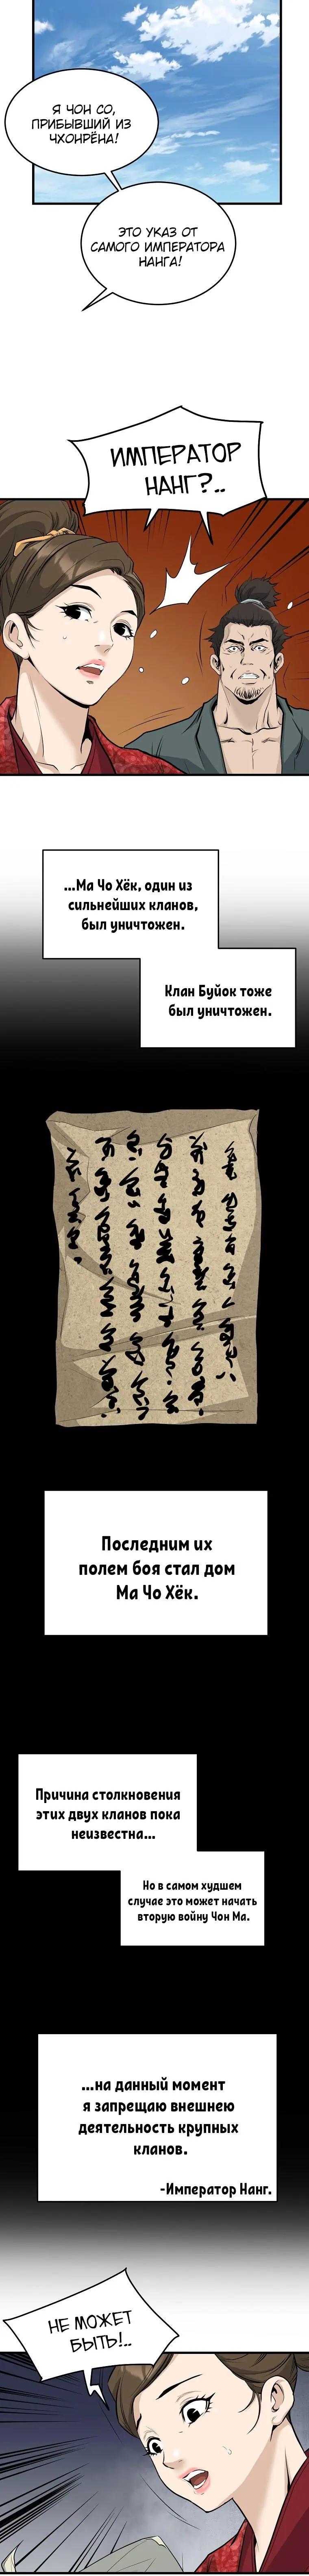 Я ЧОН СО,
ПРИБЫВШИЙ ИЗ
ЧХОНРЁНА!
ЭТО УКАЗ ОТ
САМОГО ИМПЕРАТОРА
НАНГА!
ИМПЕРАТОР
НАНГ?..
...Ма Чо Хёк, один из
сильнейших кланов,
был уничтожен.
Клан Буйок тоже
был уничтожен.
Последним их
полем боя стал дом
Ма Чо Хёк.
Причина столкновения
этих двух кланов пока
неизвестна...
Но в самом худшем
случае это может начать
вторую войну Чон Ма.
...на данный момент
я запрещаю внешнею
деятельность крупных
кланов.
-Император Нанг.
НЕ МОЖЕТ
БЫТЬ!..